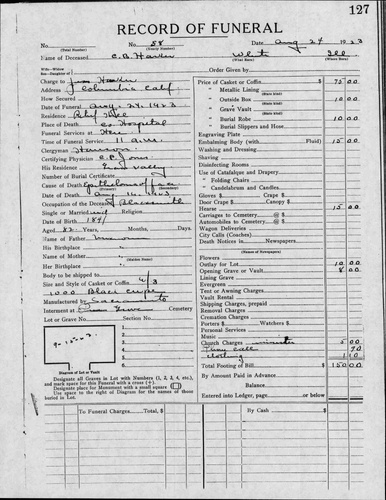 127
RECORD OF FUNERAL
No. No. 58 Date Aug 24 1923
(Total Number) (Yearly Number)
Name of Deceased C. B. White Ill
(What Race) (Where Born)
Wife—Widow
Son—Daughter of Order Given by
Charge to
Address Columbia Calif
How Secured
Date of Death Aug. 24. 1923
Residence
Place of Death Co Hospital
Funeral Services at Here
Time of Funeral Service 11 a.m.
Clergyman
Certifying Physician E. C. Jones
His Residence Grass Valley
Number of Burial Certificate
Cause of Death
Date of Death
Occupation of the Deceased Blacksmith
Single or Married Religion
Date of Birth 1841
Aged 82 Years, Months, Days
Name of Father
His Birthplace
Name of Mother
(Maiden Name)
Her Birthplace
Body to be shipped to
Size and Style of Casket or Coffin 6/3
Black
Manufactured by Sacramento
Interment at Cemetery
Lot or Grave No. Section No.
Diagram of Lot or Vault
Designate all Graves in Lot with Numbers (1, 2, 3, 4, etc.), and mark space for this Funeral with a cross (+).
Designate place for Monument with a small square
Use space to the right of Diagram for the names of those buried in Lot.
Price of Casket or Coffin $ 75 00
" Metallic Lining
(State Kind)
" Outside Box 10 00
(State Kind)
" Grave Vault
(State Kind)
" Burial Robe 10 00
(State Kind)
" Burial Slippers and Hose
Engraving Plate
Embalming Body (with Fluid) 15 00
Washing and Dressing
Shaving
Disinfecting Rooms
Use of Catafalque and Drapery
" Folding Chairs
" Candelabrum and Candles
Gloves $ Crape $
Door Crape $ Canopy $
Hearse 15 00
Carriages to Cemetery @ $
Automobiles to Cemetery @ $
Wagon Deliveries
City Calls (Coaches)
Death Notices in Newspapers
(Names of Newspapers)
Flowers
Outlay for Lot 10 00
Opening Grave or Vault 8 00
Lining Grave
Evergreen
Tent or Awning Charges
Vault Rental
Shipping Charges, prepaid
Removal Charges
Cremation Charges
Porters $ Watchers $
Personal Services
Music
Church Charges minister 5 00
Phone call 70
clothing 1 10
Total Footing of Bill $ 150 00
By Amount Paid in Advance
Balance
Entered into Ledger, page or below.
To Funeral Charges $ By Cash $